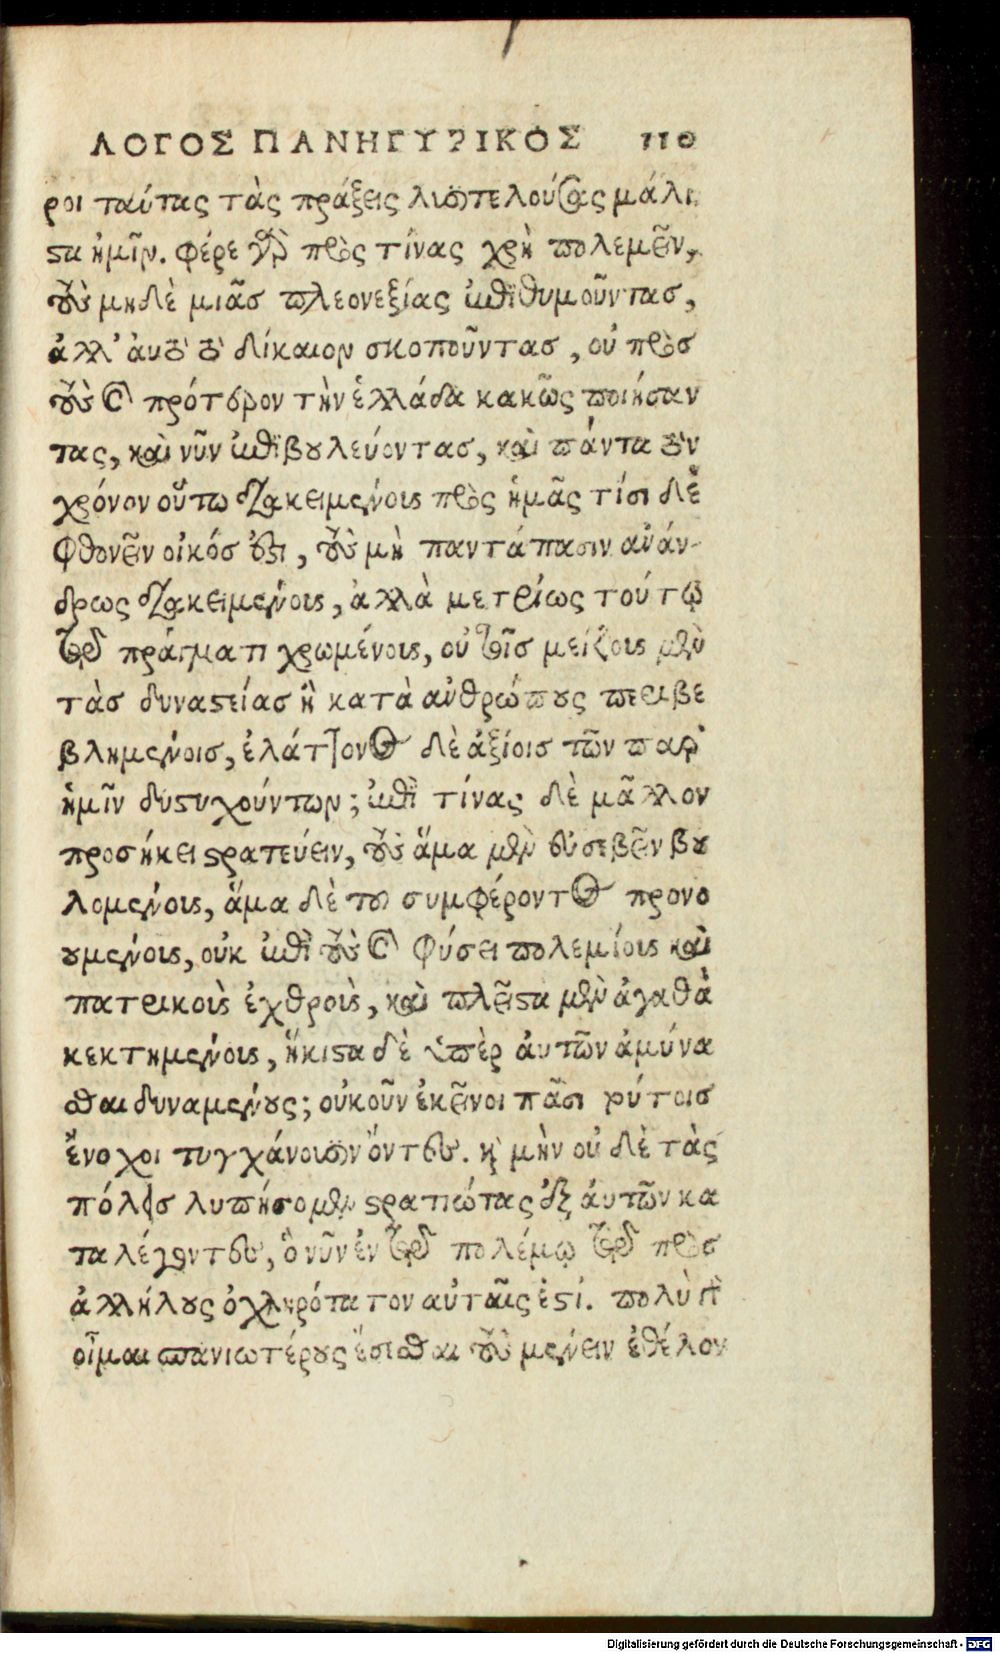 ΛΟΓΟΣ ΠΑΝΗΓΥΡΙΚΟΣ 110
ροι ταύτας τὰς πράξεις λυσιτελούσας μάλι
στα ἡμῖν. φέρε γὰρ πρὸς τίνας χρὴ πολεμεῖν,
τοὺς μηδὲ μιᾶσ πλεονεξίας ἐπιθυμοῦντασ,
ἀλλ' αὐτὸ τὸ δίκαιον σκοποῦντασ, οὐ πρὸσ
τοὺς καὶ πρότερον τὴν ἑλλάδα κακῶς ποιήσαν
τας, καὶ νῦν ἐπιβουλεύοντασ, καὶ πάντα τὸν
χρόνον οὕτω διακειμένους πρὸς ἡμᾶς τίσι δὲ
φθονεῖν εἰκόσ ἐστι, τοὺς μὴ παντάπασιν ἀνάν-
δρως διακειμένους, ἀλλὰ μετρίως τούτῳ
τῷ πράγματι χρωμένους, οὐ τοῖσ μείζους μὲν
τὰσ δυναστείασ ἢ κατὰ ἀνθρώπους περιβε
βλημένοισ, ἐλάττονος δὲ ἀξίοισ τῶν παρ'
ἡμῖν δυστυχούντων; ἐπὶ τίνας δὲ μᾶλλον
προσήκει στρατεύειν, τοὺς ἅμα μὲν εὐσεβεῖν βου
λομένους, ἅμα δὲ τοῦ συμφέροντος προνο
ουμένους, οὐκ ἐπὶ τοὺς καὶ φύσει πολεμίους καὶ
πατρικοὺς ἐχθροὺς, καὶ πλεῖστα μὲν ἀγαθὰ
κεκτημένους, ἥκιστα δὲ ὑπὲρ αὐτῶν ἀμύνα
σθαι δυναμένους; οὐκοῦν ἐκεῖνοι πᾶσι τούτοισ
ἔνοχοι τυγχάνουσιν ὄντες. καὶ μὴν οὐ δὲ τὰς
πόλεισ λυπήσομεν στρατιώτας ἐξ αὐτῶν κα
ταλέγοντες, ὃ νῦν ἐν τῷ πολέμῳ τῷ πρὸσ
ἀλλήλους ὀχληρότατον αὐταῖς ἐστί. πολὺ γὰρ
οἶμαι σπανιωτέρους ἔσεσθαι τοὺς μένειν ἐθέλον
Digitalisierung gefördert durch die Deutsche Forschungsgemeinschaft - DFG